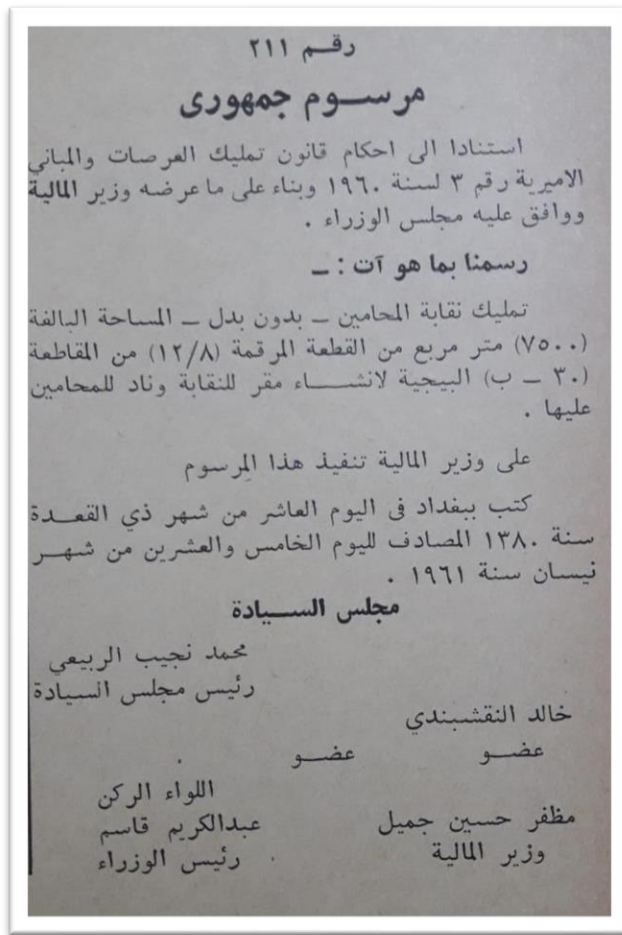 رقم ٢١١
مرسوم جمهورى
استنادا الى احكام قانون تمليك العرصات والمباني
الاميرية رقم ٣ لسنة ١٩٦٠ وبناء على ما عرضه وزير المالية
ووافق عليه مجلس الوزراء .
رسمنا بما هو آت : ــ
تمليك نقابة المحامين ــ بدون بدل ــ المساحة البالغة
(٧٥٠٠) متر مربع من القطعة المرقمة (١٢/٨) من المقاطعة
(٣٠ ــ ب) البيجية لانشاء مقر للنقابة وناد للمحامين
عليها .
على وزير المالية تنفيذ هذا المرسوم
كتب ببغداد فى اليوم العاشر من شهر ذي القعدة
سنة ١٣٨٠ المصادف لليوم الخامس والعشرين من شهر
نيسان سنة ١٩٦١ .
مجلس السيادة
محمد نجيب الربيعي
رئيس مجلس السيادة
خالد النقشبندي
عضو عضو
اللواء الركن
مظفر حسين جميل عبدالكريم قاسم
وزير المالية رئيس الوزراء